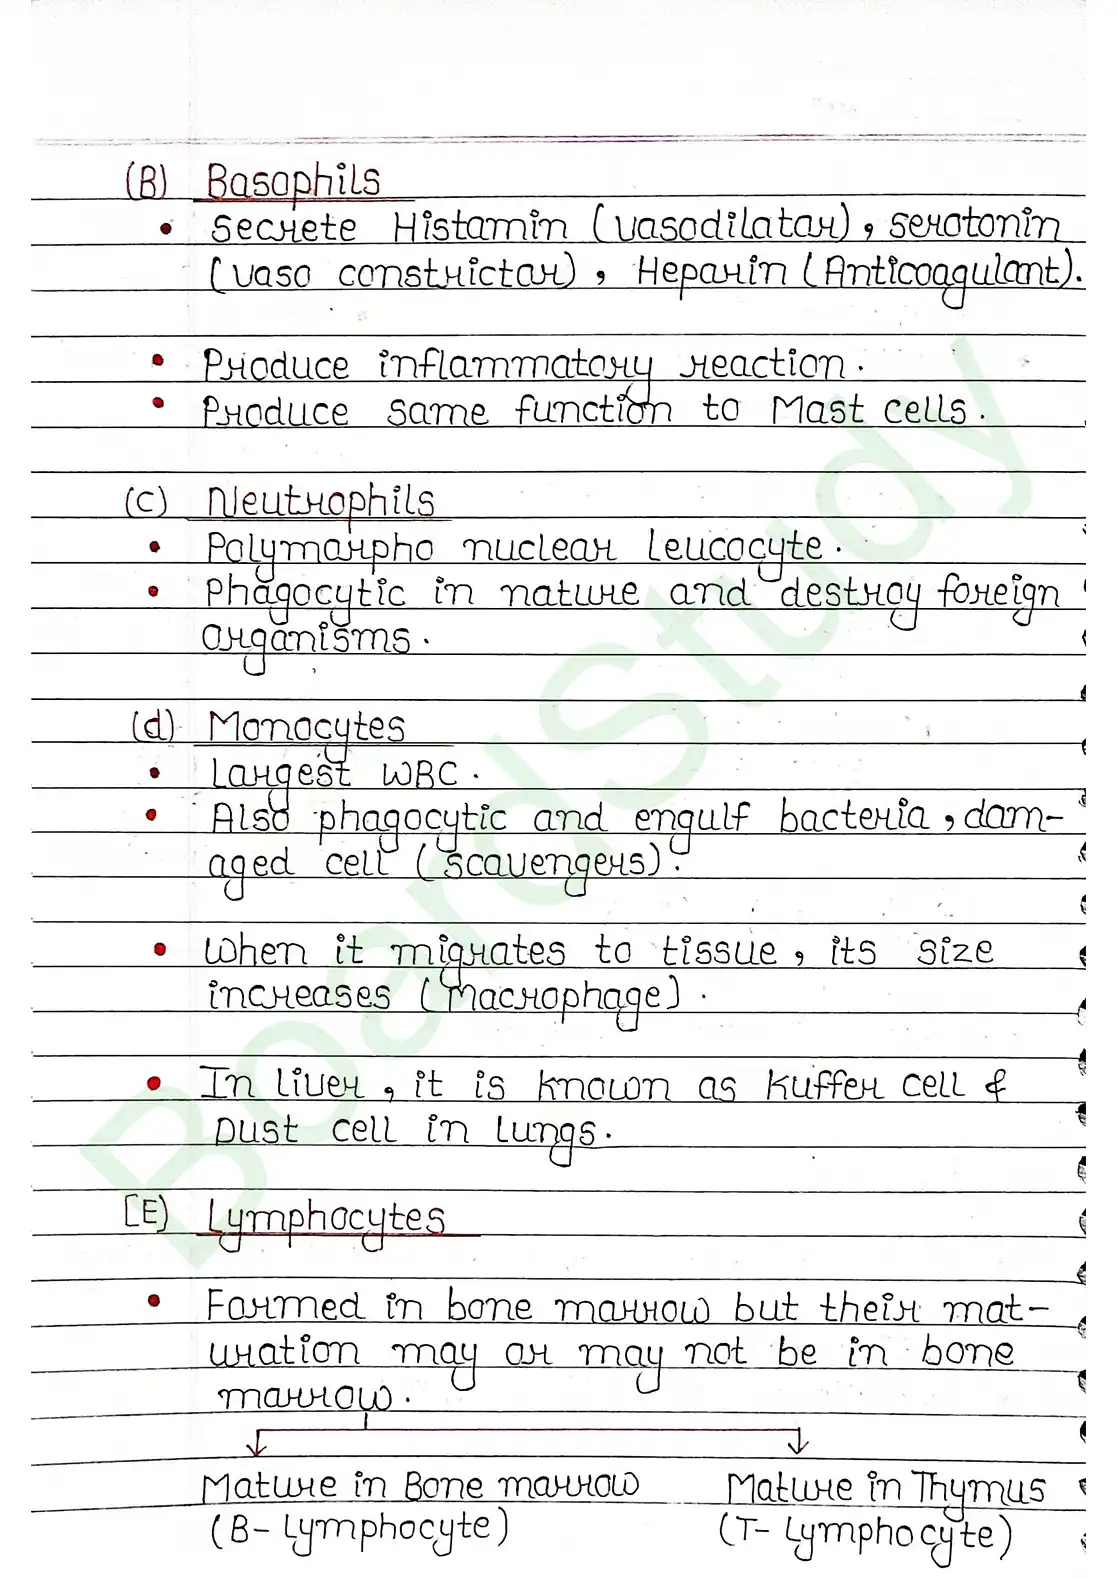 (B) Basophils
• Secrete Histamin (vasodilator), serotonin
(vaso constrictor), Heparin (Anticoagulant).
• Produce inflammatory reaction.
• Produce same function to Mast cells.
(C) Neutrophils
• Polymorpho nuclear Leucocyte.
• Phagocytic in nature and destroy foreign
organisms.
(d) Monocytes
• Largest WBC.
• Also phagocytic and engulf bacteria, dam-
aged cell (scavengers).
• When it migrates to tissue, its size
increases (Macrophage).
• In liver, it is known as Kuffer cell &
Dust cell in Lungs.
[E) Lymphocytes
• Formed in bone marrow but their mat-
uration may or may not be in bone
marrow.
Mature in Bone marrow Mature in Thymus
(B- Lymphocyte) (T- Lymphocyte)
BoardStudy